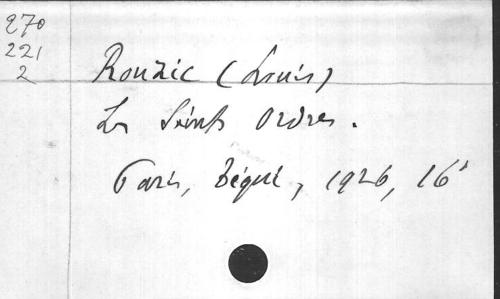 270
221
2
Rouzic (Louis)
Les Saints Ordres.
Paris, Téqui, 1926, 16°